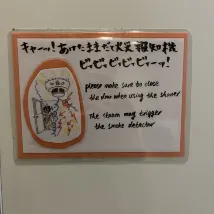 キャーッ！あけたままだと火災報知機
ピーピーピーピーピィーッ！
please make sure to close
the door when using the shower
The steam may trigger
the smoke detector